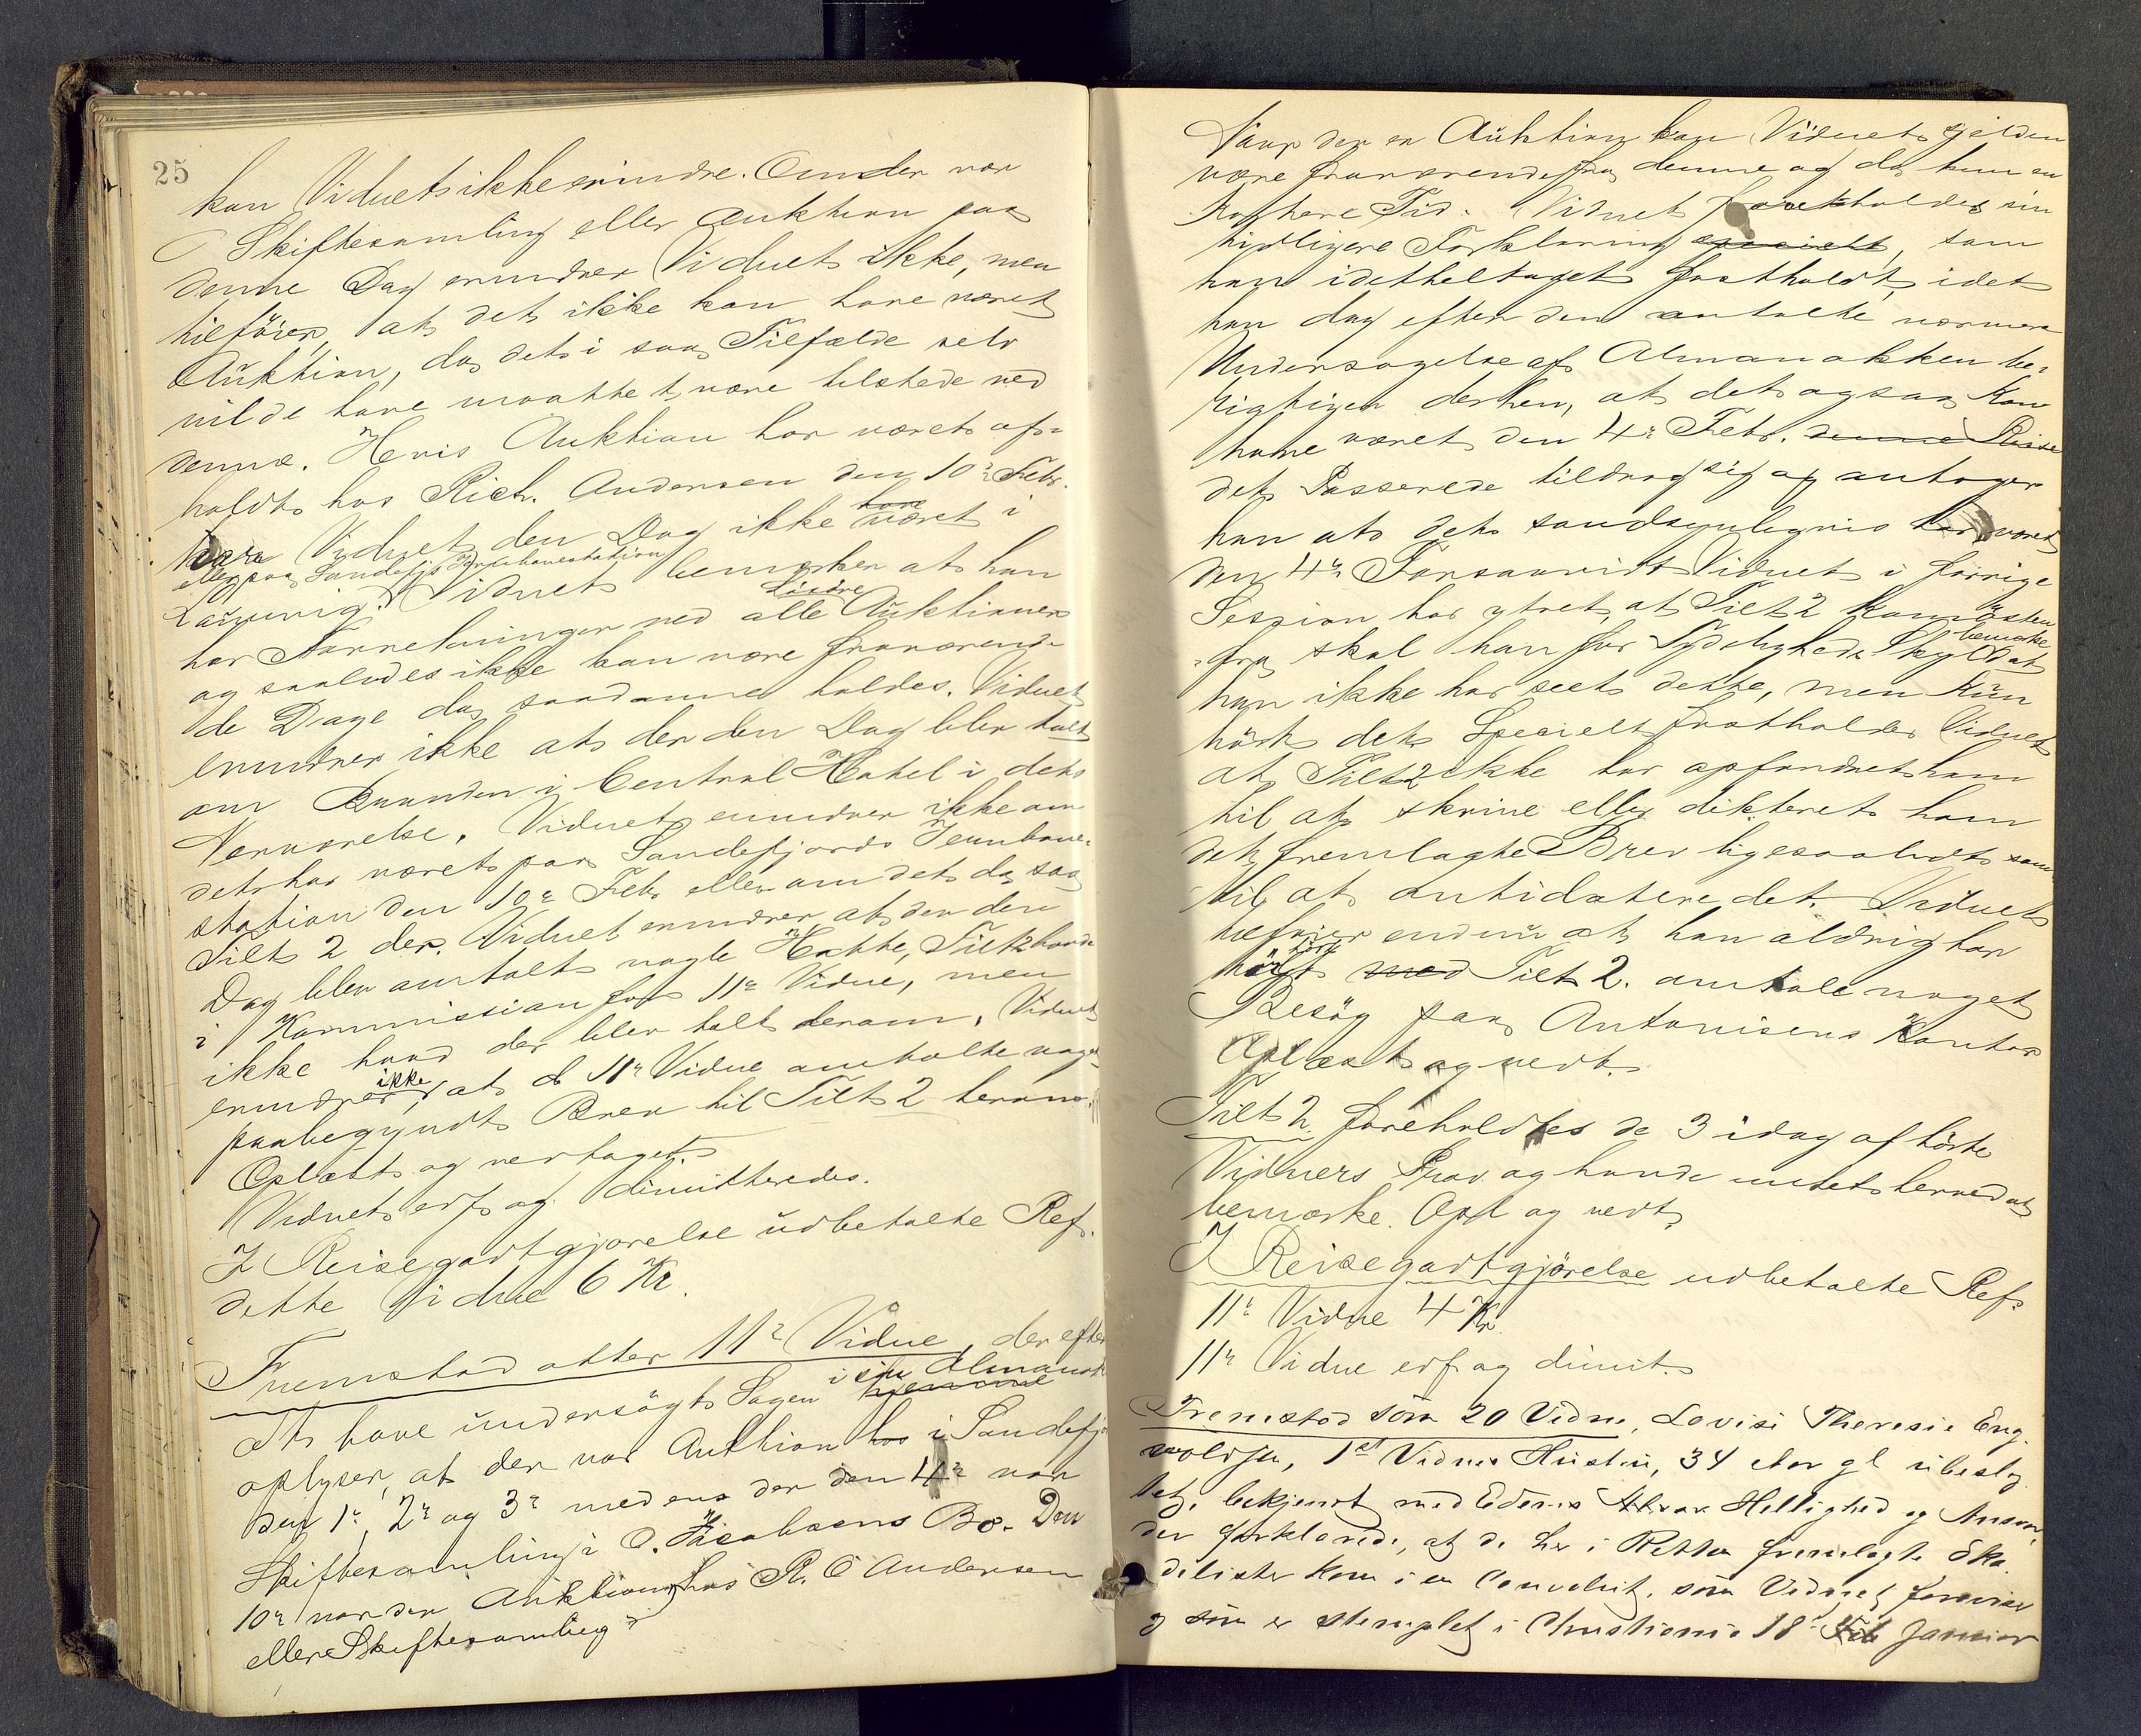 25
kan Vidnet ikke erindre. Om der var
Skiftesamling eller Auktion paa
denne Dag erindrer Vidnet ikke, men
tilføier, at det ikke kan have været
Auktion, da det i saa Tilfælde selv
vilde have maattet være tilstede ved
denne. Hvis Auktion har været af-
holdt hos Rich. Andersen den 10de Febr.
Vidnet den Dag ikke have været i
eller paa Sandefjs Jernbanestation
Laurvig. Vidnet bemerker at han
har Forretninger ved alle Løsøre Auktioner
og saaledes ikke kan være fraværen-
de Dage da saadanne holdes. Vidnet
erindrer ikke at der den Dag blev talt
om Branden i Central Hotel i dets
Nærværelse. Vidnet erindrer ikke om
det har været paa Sandefjords Jernbane-
station den 10de Febr eller om det da saa
Tilt 2 der. Vidnet erindrer at der den
Dag blev omtalt nogle Hatte, Tilt 2 havde
i Kommission fra 11te Vidne, men
ikke hvad der blev talt derom. Vidnet
erindrer ikke, at d 11te Vidne omtalte noget
paabegyndt Brev til Tilt 2 herom.
Oplæst og vedtaget.
Vidnet erf og dimitteredes.
I Reisegodtgjørelse udbetalte Ref.
dette Vidne 6 Kr.
Fremstod atter 11te Vidne, der efter
at have undersøgt Sagen i sin Almanak
oplyser, at der var Auktion hos i Sandefj
den 1te, 2de og 3de medens der den 4de var
Skiftesamling i O. Jacobsens Bo. Den
10de var der Auktion hos R. O Andersen
eller Skiftesamling
Naar der er Auktion kan Vidnet sjelden
være fraværende fra denne og da kun en
kortere Tid. Vidnet fastholder sin
tidligere Forklaring specielt, som
han idetheletaget fastholdt, idet
han dog efter den omtalte nærmere
Undersøgelse af Almanakken be-
rigtiger derhen, at det ogsaa kan
have været den 4de Febr. denne Reise
det Passerede tildrog sig og antager
han at det sandsynligvis har været
den 4de Forsaavidt Vidnet i forrige
Session har ytret, at Tilt 2 kom østen-
fra skal han for Tydeligheds Skyld bemærke at
han ikke har seet dette, men kun
hørt det. Specielt fastholder Vidnet
at Tilt 2 ikke har opfordret ham
til at skrive eller dikteret ham
det fremlagte Brev ligesaalidt som
til at antidatere det. Vidnet
tilføier endnu at han aldrig har
hørt med Tilt 2. omtale noget
Besøg paa Antonisens Kontor
Oplæst og vedt.
Tilt 2. foreholdtes de 3 idag afhørte
Vidners Prov og havde intet herved at
bemærke. Opl og vedt.
I Reisegodtgjørelse udbetalte Ref.
11te Vidne 4 Kr
11te Vidne erf og dimit.
Fremstod som 20 Vidne, Lovise Theresie Eng-
voldsen, 1ste Vidnes Hustru, 34 Aar gl ubeslg
tet, bekjendt med Edens Hellighed og Ansvar,
der forklarede, at de her i Retten fremlagte Ska-
delister kom i en Convolut, som Vidnet foreviser
og som er stemplet i Christiania 18de Feb Januar